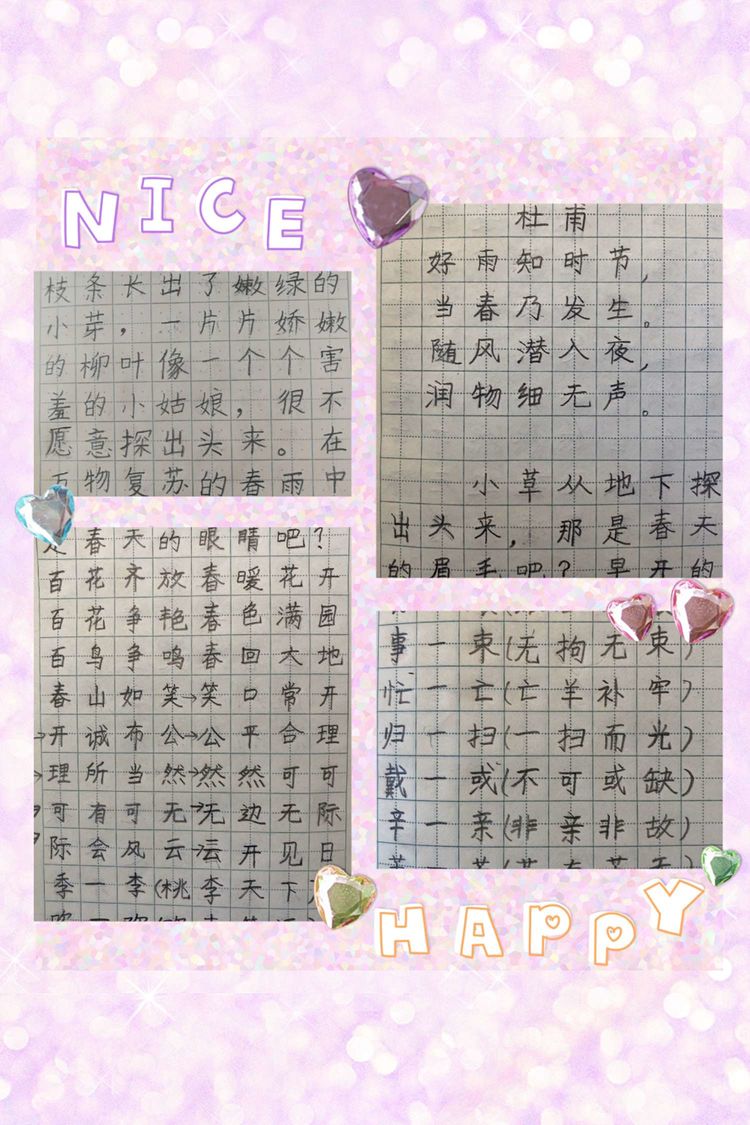 NICE
枝条长出了嫩绿的
小芽，一片片娇嫩
的柳叶像一个个害
羞的小姑娘，很不
愿意探出头来。在
万物复苏的春雨中
杜甫
好雨知时节，
当春乃发生。
随风潜入夜，
润物细无声。
小草从地下探
出头来，那是春天
的眉毛吧？早开的
是春天的眼睛吧？
百花齐放春暖花开
百花争艳春色满园
百鸟争鸣春回大地
春山如笑→笑口常开
→开诚布公→公平合理
→理所当然→然然可可
→可有可无→无边无际
际会风云→云开见日
季一李(桃李天下)
事一束(无拘无束)
忙一亡(亡羊补牢)
归一扫(一扫而光)
戴一或(不可或缺)
辛一亲(非亲非故)
HAPPY